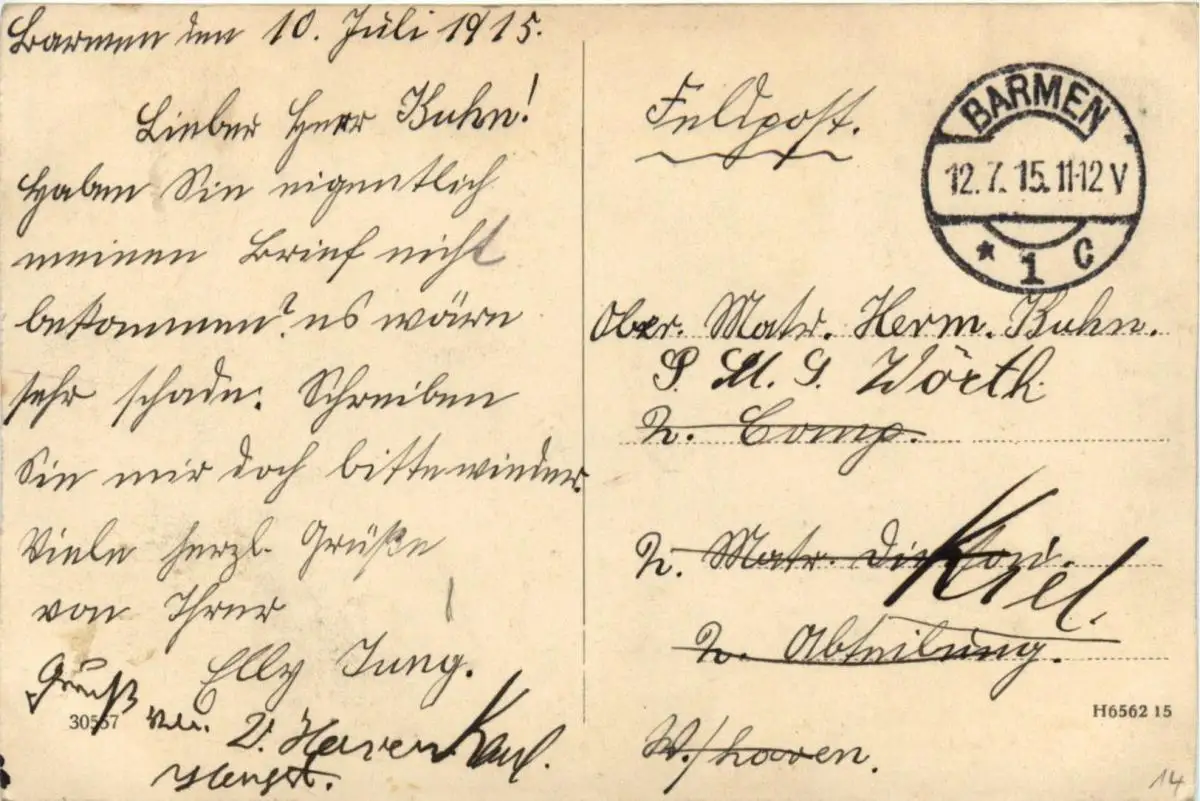 Barmen den 10. Juli 1915.
Lieber Herr Kuhn!
Haben Sie eigentlich
meinen Brief nicht
bekommen? es wäre
sehr schade. Schreiben
Sie mir doch bitte wieder.
Viele herzl. Grüße
von Ihrer
Elly Jung.
Gruß
von
30557
Feldpost.
BARMEN
12.7.15. 11-12 V
* 1 c
Ober. Matr. Herm. Kuhn.
S. M. S. Wörth
2. Comp.
2. Matr. Division.
Kiel.
2. Abteilung.
W./haven.
H6562 15
14